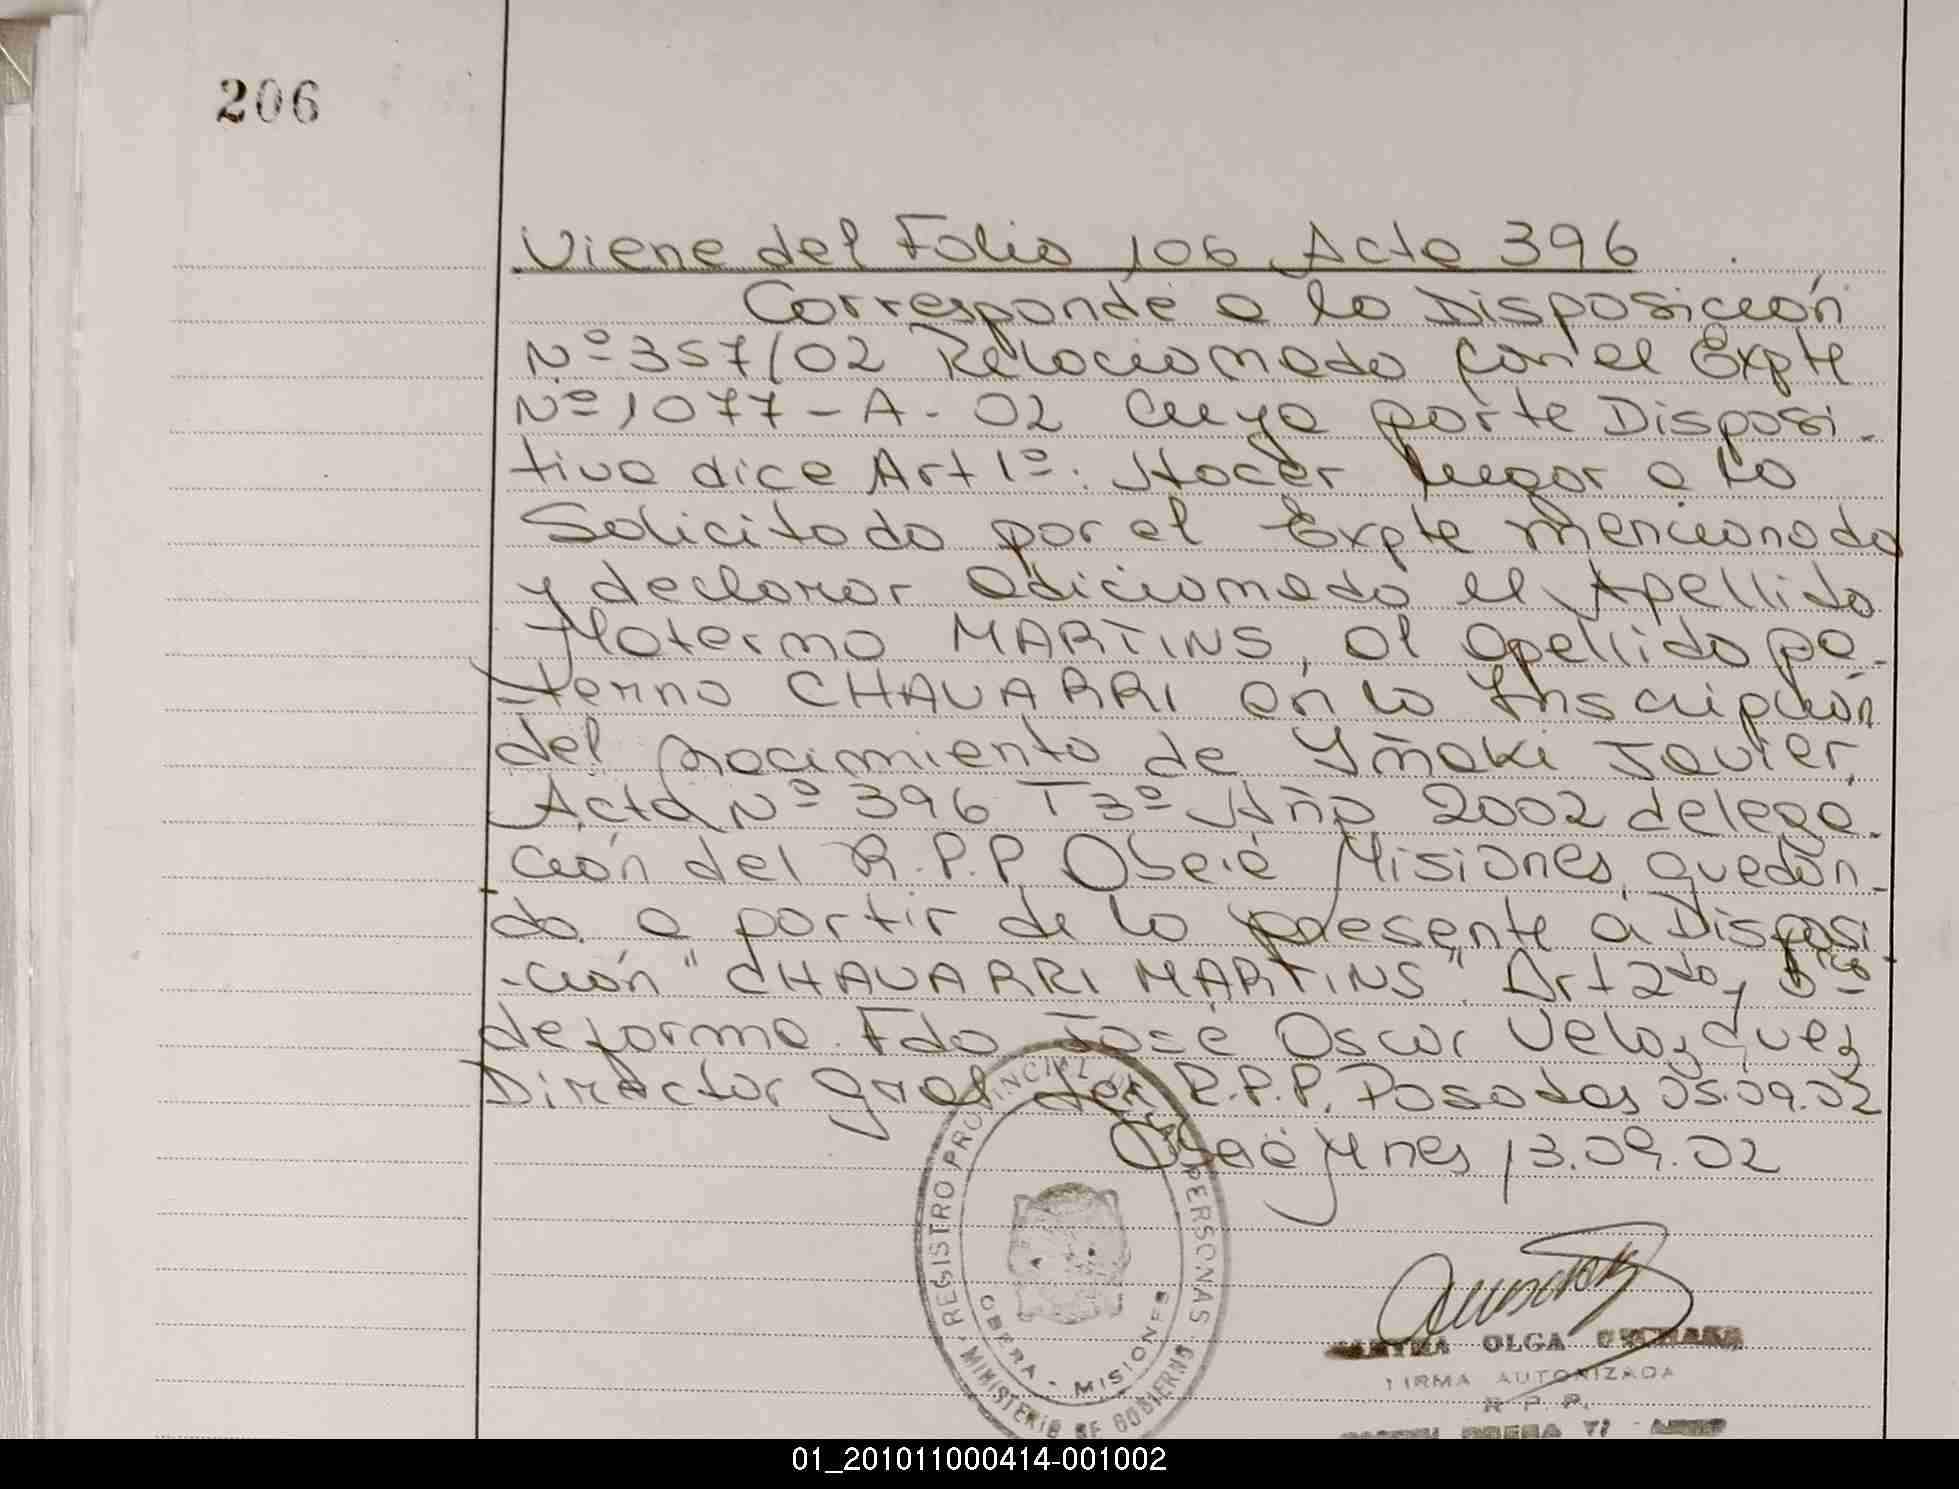 206
Viene del Folio 106 Acta 396
Corresponde a la Disposición
Nº 357/02 Relacionado con el Expte
Nº 1077-A-02 cuya parte Disposi-
tiva dice Art 1º: Hacer lugar a lo
Solicitado por el Expte mencionado
y declarar adicionado el Apellido
Materno MARTINS, al apellido pa-
terno CHAVARRI en la Inscripción
del nacimiento de Yñaki Javier,
Acta Nº 396 T 3º Año 2002 delega-
ción del R.P.P. Oberá Misiones, quedan-
do a partir de la presente a Disposi
-ción "CHAVARRI MARTINS". Art 2do y
de forma. Fdo José Oscar Velazquez
Director Gral del R.P.P. Posadas 05.09.02
Oberá Mnes 13.09.02
REGISTRO PROVINCIAL DE LAS PERSONAS
OBERA - MISIONES
MINISTERIO DE GOBIERNO
OLGA
FIRMA AUTORIZADA
R. P. P.
01_201011000414-001002